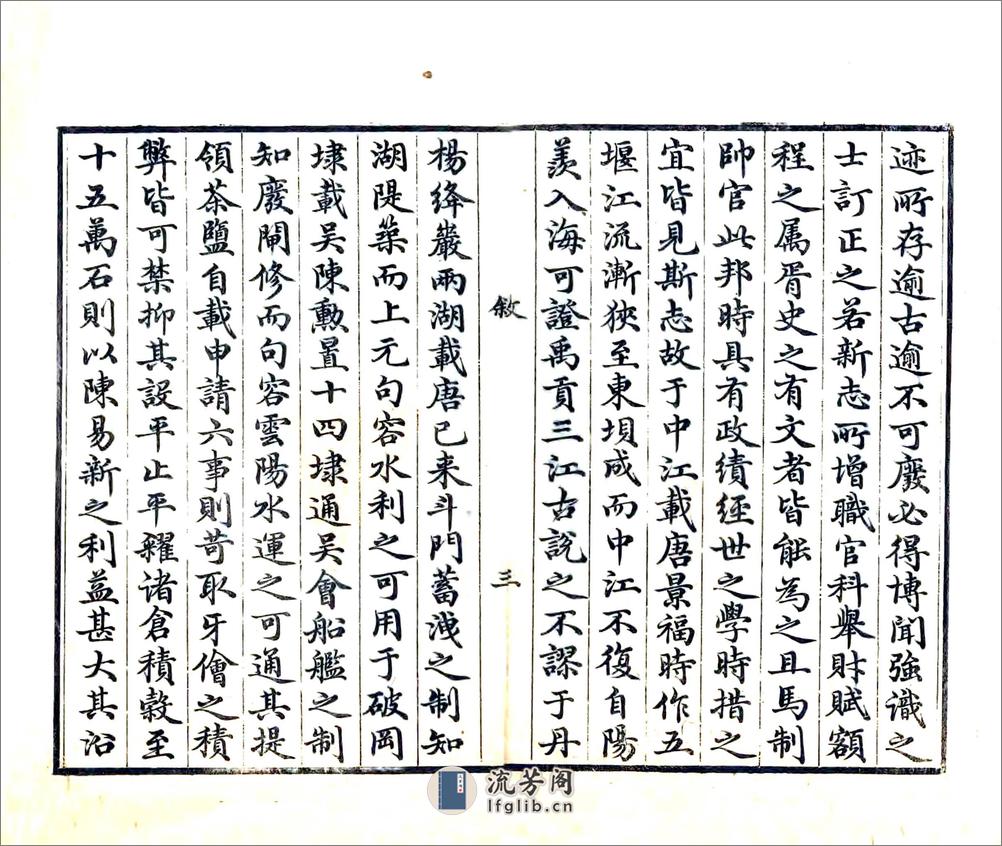 迹所存逾古逾不可廢必得博聞強識之
士訂正之若新志所增職官科舉財賦額
程之属胥史之有文者皆能為之且馬制
帥官此邦時具有政績經世之學時措之
宜皆見斯志故于中江載唐景福時作五
堰江流漸狹至東垻成而中江不復自陽
羨入海可證禹貢三江古說之不謬于丹
敘
三
楊絳巖兩湖載唐已来斗門蓄洩之制知
湖隄築而上元句容水利之可用于破岡
埭載吴陳勳置十四埭通吴會船艦之制
知廢閘修而句容雲陽水運之可通其提
領茶鹽自載申請六事則苛取牙儈之積
弊皆可禁抑其設平止平糴诸倉積穀至
十五萬石則以陳易新之利益甚大其㳂
流芳阁
lfglib.cn